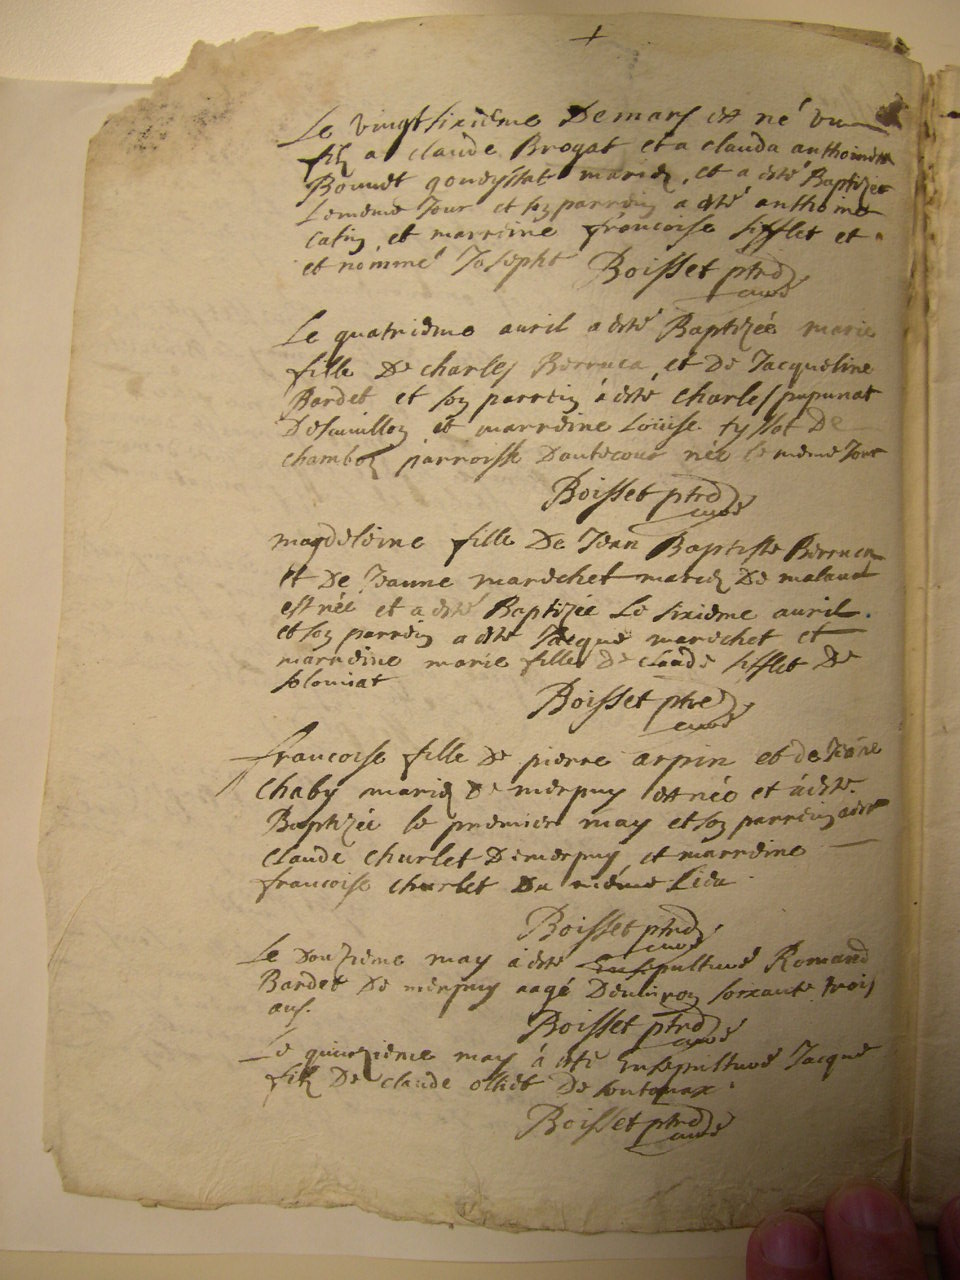 Le vingt sixieme De mars est né un
filz a claude Brogat et a clauda anthoinette
Bonnet mariez, et a esté Baptizer
Le meme Jour et son parrein a esté anthoine
Catin et marreine francoise sifflet et
et nommé Joseph Boisset ptre
curé
Le quatrieme auril a esté Baptizée marie
fille De charles Berruca et De Jacqueline
Bardet et son parrein á esté charles pupunat
et marreine Loüise tyssot De
chambon parroisse née le meme Jour
Boisset ptre
curé
magdeleine fille De Jean Baptiste Berruca
et De Jeanne marechet mariez De
est née et a esté Baptizée Le sixieme auril.
et son parrein a esté Jacque marechet et
marreine marie fille De claude sifflet De
solomiat
Boisset ptre
curé
francoise fille De pierre arpin et de Jeane
Chaby mariez De merpuy est née et á esté
Baptizée le premier may et son parrein a esté
Claude charlet De merpuy et marreine
francoise charlet Du méme Lieu
Boisset ptre
curé
Le Douzieme may á esté Ensepulturé Romand
Bardet De merpuy aagé D'enuiron soixante trois
ans.
Boisset ptre
curé
Le quinzieme may á esté Ensepulturé Jacque
filz De claude De
Boisset ptre
curé